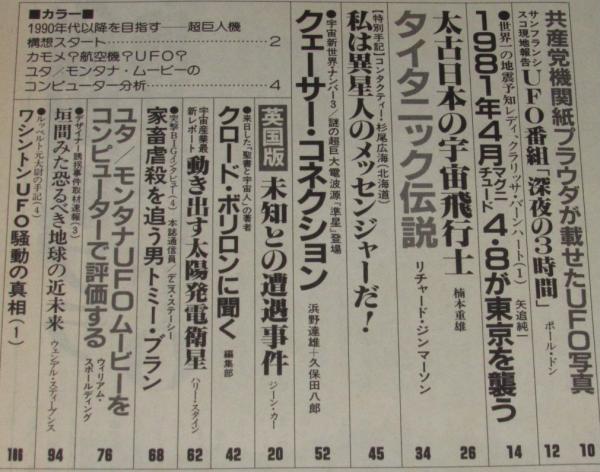 共産党機関紙プラウダが載せたUFO写真
10
サンフランシスコ現地報告
UFO番組「深夜の3時間」
ポール・ドン
12
●世界一の地震予知レディ、クラリッサ・バーンハート(1)
矢追純一
1981年4月マグニチュード4・8が東京を襲う
14
太古日本の宇宙飛行士
楠本重雄
26
タイタニック伝説
リチャード・ジンマーソン
34
【特別手記】コンタクティー・杉尾広海(北海道)
私は異星人のメッセンジャーだ!
45
●宇宙新世界ナンバー3/謎の超巨大電波源「準星」登場
クェーサー・コネクション
浜野達雄+久保田八郎
52
■カラー■
1990年代以降を目指す――超巨人機
構想スタート……………2
カモメ?航空機?UFO?
ユタ/モンタナ・ムービーの
コンピューター分析……………4
英国版
未知との遭遇事件
ジーン・カー
20
●来日した「聖書と宇宙人」の著者
クロード・ボリロンに聞く
編集部
42
宇宙産業最新レポート
動き出す太陽発電衛星
ハリー・スタイン
62
●突撃BIGインタビュー(4)
本誌通信員/デニス・ステーシー
家畜虐殺を追う男トミー・ブラン
68
ユタ/モンタナUFOムービーを
コンピューターで評価する
ウィリアム・スポールディング
76
●デザイナー誘拐事件取材速報(3)
垣間みた恐るべき地球の近未来
ウェンデル・スティーブンス
94
●ルッペルト元大尉の手記(4)
ワシントンUFO騒動の真相(1)
106